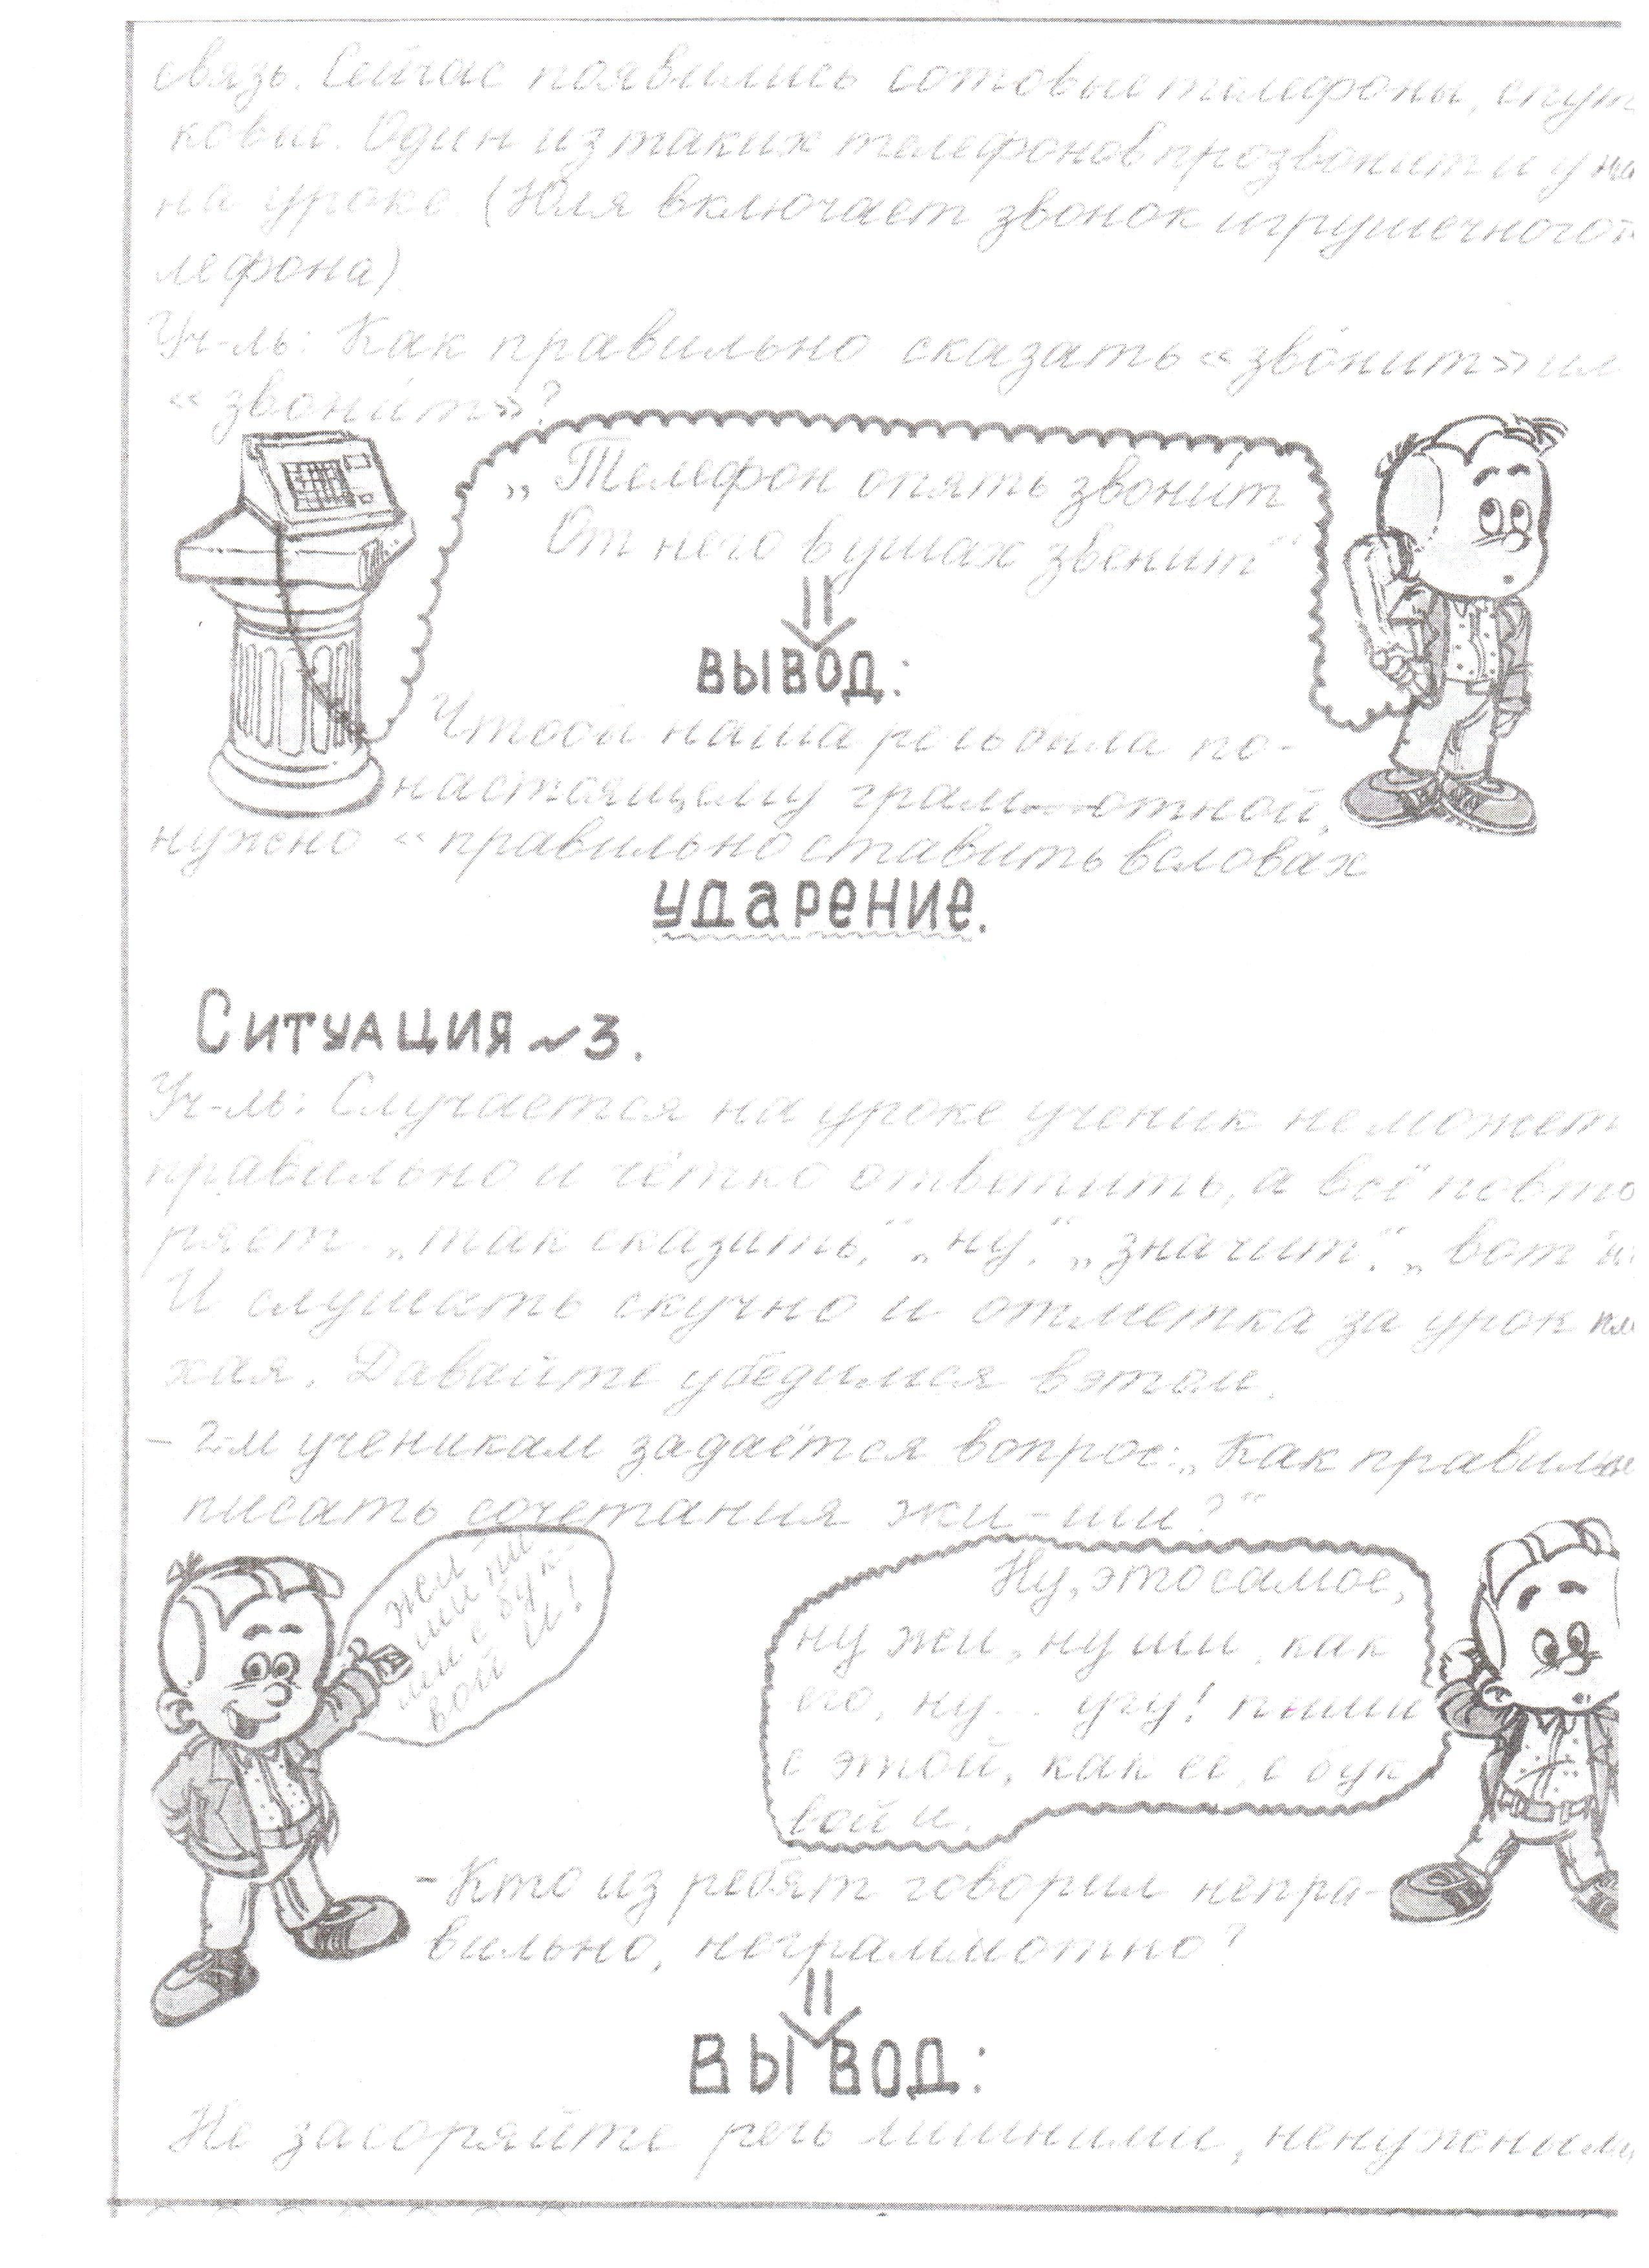 связь. Сейчас появились сотовые телефоны, спут
ковые. Один из таких телефонов прозвонит и у на
на уроке. (Юля включает звонок игрушечного т
лефона)
Уч-ль: Как правильно сказать «звóнит» ил
«звони́т»?
„Телефон опять звони́т
От него в ушах звенит“
ВЫВОД:
Чтобы наша речь была по-
настоящему грамотной,
нужно «правильно ставить в словах
ударение.
Ситуация ~3.
Уч-ль: Случается на уроке ученик не может
правильно и чётко ответить, а всё повто
ряет „так сказать,“ „ну“. „значит“. „вот
И слушать скучно и отметка за урок пло
хая. Давайте убедимся в этом.
- 2-м ученикам задаётся вопрос: „Как правильно
писать сочетания жи-ши?“
жи-
ши пи
ши с бук-
вой и!
Ну, это самое,
ну жи, ну ши, как
его, ну... угу! пиши
с этой, как её, с бук
вой и.
- Кто из ребят говорил непра-
вильно, неграммотно?
ВЫВОД:
Не засоряйте речь лишними, ненужными